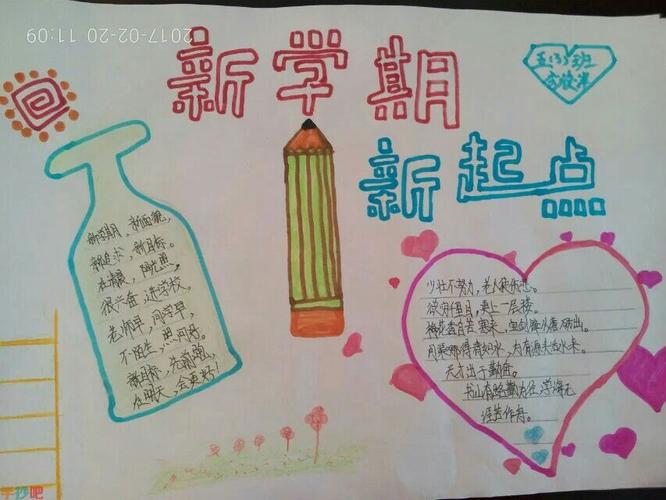 2017-02-20 11:09
新学期
新起点
五(3)班
新学期，新面貌，
新追求，新目标。
在清晨，阳光照，
很兴奋，进学校，
老师早，同学早，
不陌生，问好。
新目标，跑，
在明天，会更好！
少壮不努力，老人徒伤悲。
欲穷千里目，更上一层楼。
梅花香自苦寒来，宝剑锋从磨砺出。
问渠那得清如水，为有源头活水来。
天才出于勤奋。
书山有路勤为径，学海无
涯苦作舟。
手抄吧